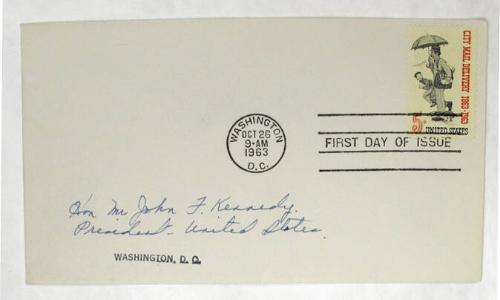 CITY MAIL DELIVERY 1863-1963
5¢
UNITED STATES
WASHINGTON
OCT 26
9-AM
1963
D.C.
FIRST DAY OF ISSUE
Hon Mr John F. Kennedy.
President - United States.
WASHINGTON, D. C.